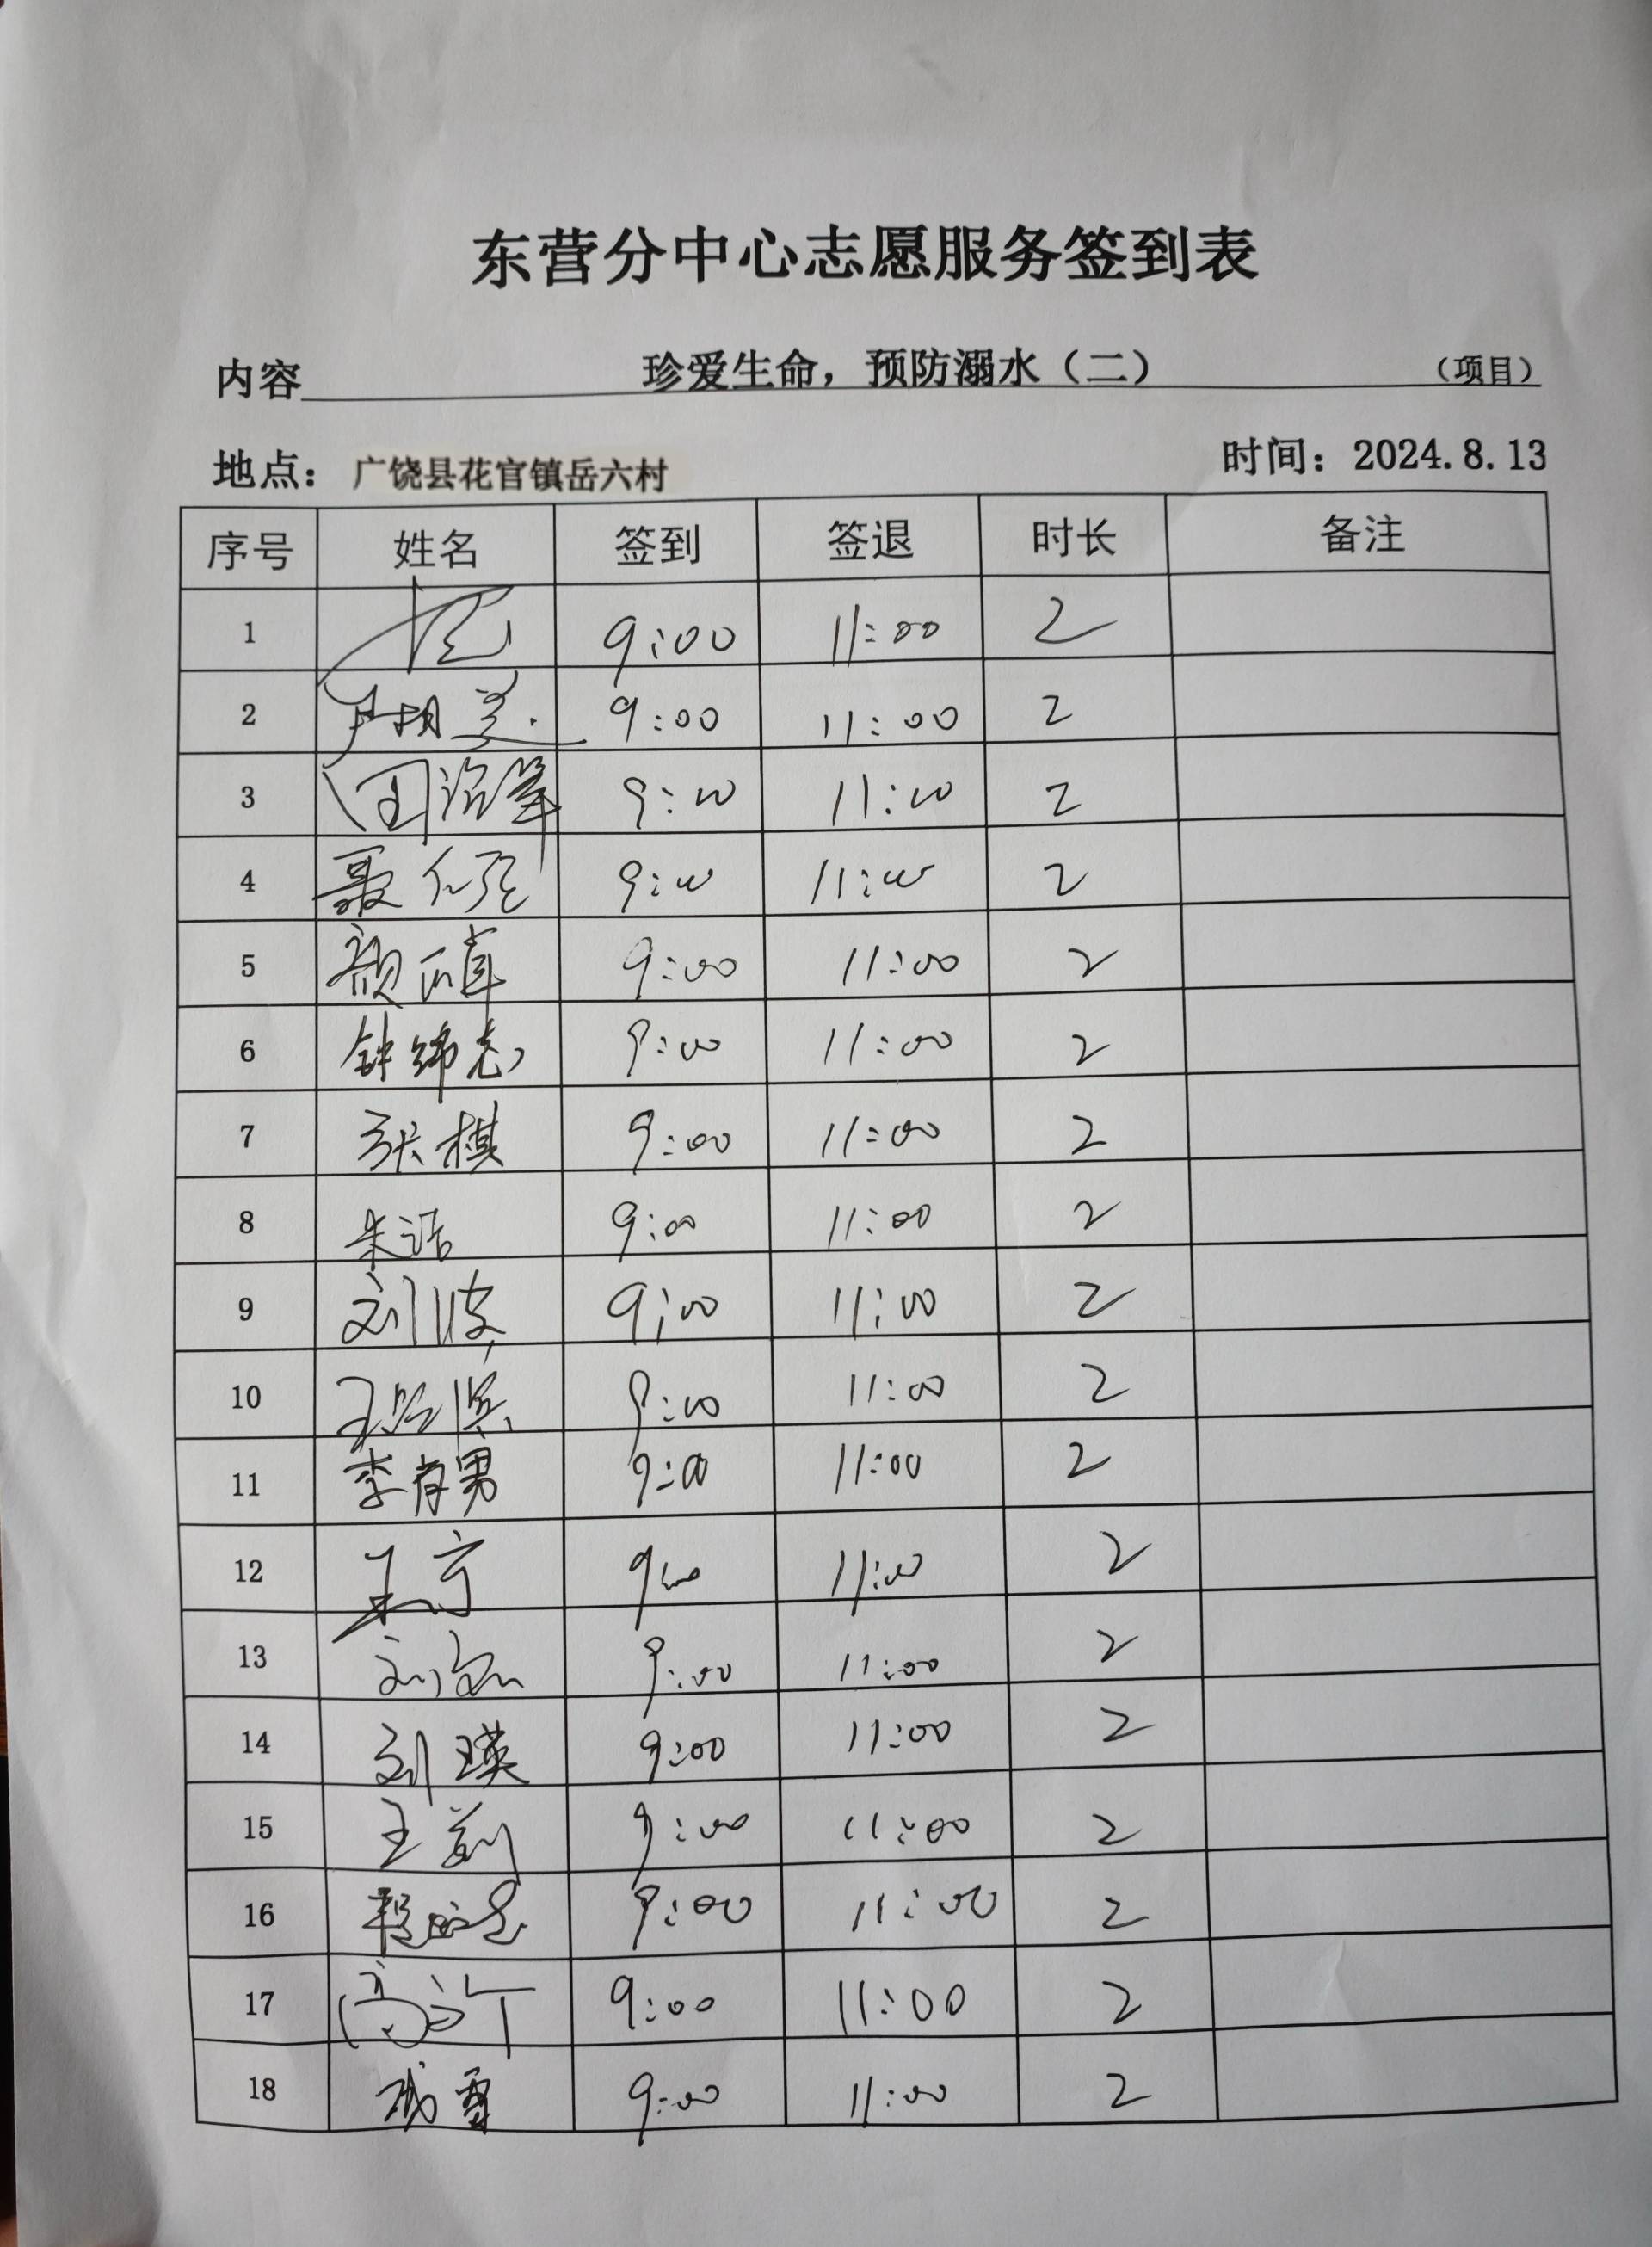 东营分中心志愿服务签到表
内容 珍爱生命，预防溺水（二） （项目）
地点： 广饶县花官镇岳六村 时间：2024.8.13
序号 姓名 签到 签退 时长 备注
1 9:00 11:00 2
2 9:00 11:00 2
3 9:00 11:00 2
4 9:00 11:00 2
5 9:00 11:00 2
6 9:00 11:00 2
7 张棋 9:00 11:00 2
8 9:00 11:00 2
9 刘波 9:00 11:00 2
10 9:00 11:00 2
11 李肖男 9:00 11:00 2
12 9:00 11:00 2
13 9:00 11:00 2
14 刘瑛 9:00 11:00 2
15 9:00 11:00 2
16 9:00 11:00 2
17 9:00 11:00 2
18 9:00 11:00 2